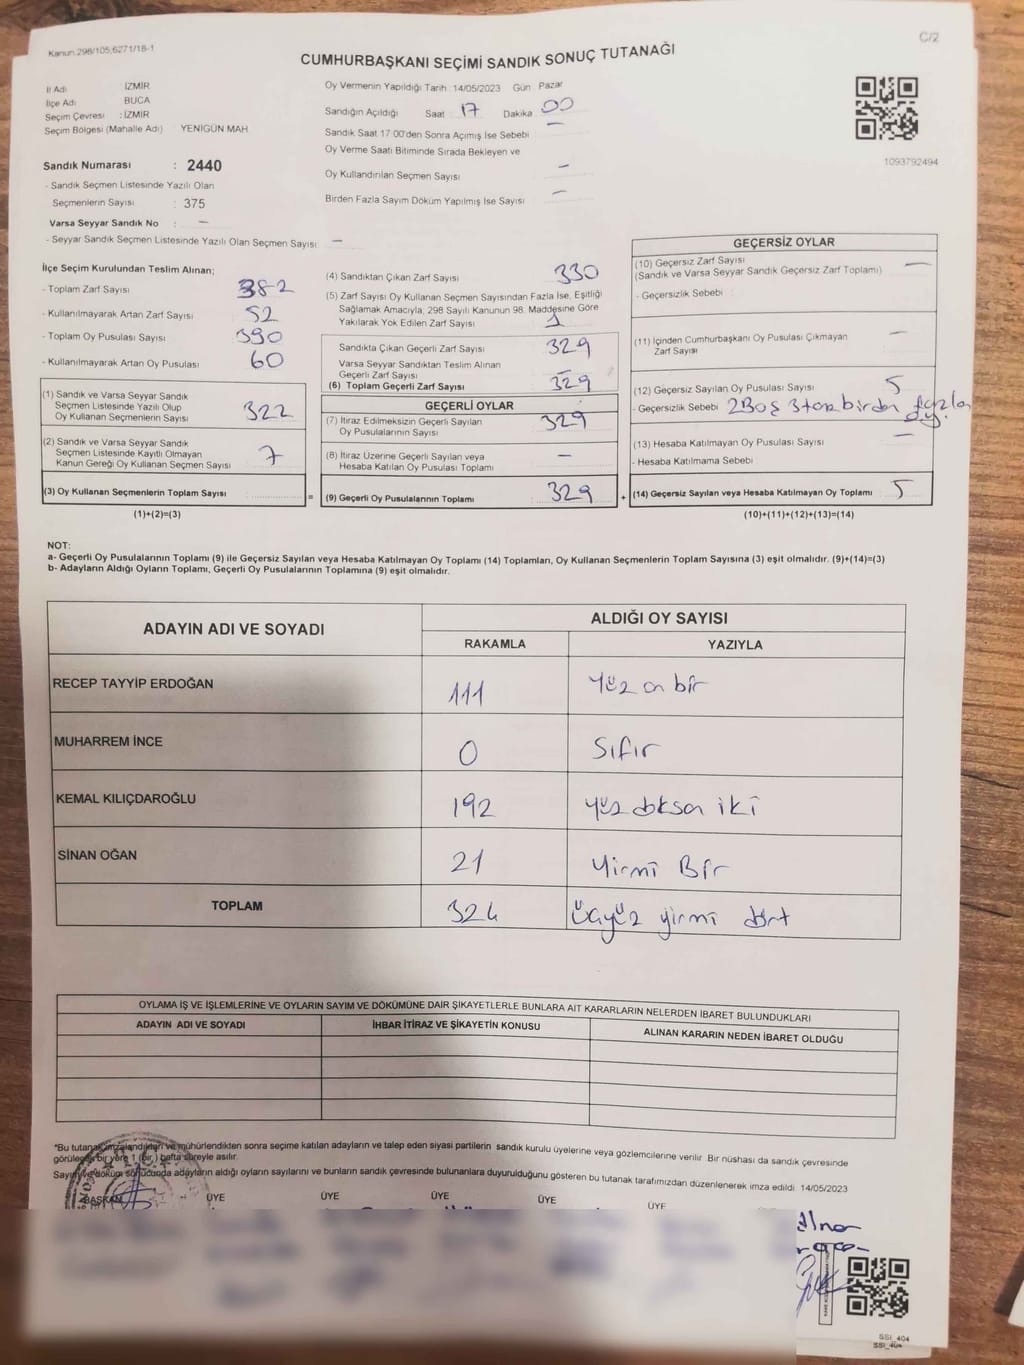 Kanun.298/105,6271/18-1
C/2
CUMHURBAŞKANI SEÇİMİ SANDIK SONUÇ TUTANAĞI
İl Adı İZMİR
İlçe Adı BUCA
Seçim Çevresi : İZMİR
Seçim Bölgesi (Mahalle Adı) YENİGÜN MAH.
Sandık Numarası : 2440
- Sandık Seçmen Listesinde Yazılı Olan
Seçmenlerin Sayısı : 375
Varsa Seyyar Sandık No : —
- Seyyar Sandık Seçmen Listesinde Yazılı Olan Seçmen Sayısı : —
Oy Vermenin Yapıldığı Tarih : 14/05/2023 Gün : Pazar
Sandığın Açıldığı Saat 17 Dakika 00
Sandık Saat 17:00'den Sonra Açımış İse Sebebi —
Oy Verme Saati Bitiminde Sırada Bekleyen ve
Oy Kullandırılan Seçmen Sayısı —
Birden Fazla Sayım Döküm Yapılmış İse Sayısı —
1093792494
İlçe Seçim Kurulundan Teslim Alınan;
- Toplam Zarf Sayısı 382
- Kullanılmayarak Artan Zarf Sayısı 52
- Toplam Oy Pusulası Sayısı 390
- Kullanılmayarak Artan Oy Pusulası 60
(1) Sandık ve Varsa Seyyar Sandık
Seçmen Listesinde Yazılı Olup
Oy Kullanan Seçmenlerin Sayısı 322
(2) Sandık ve Varsa Seyyar Sandık
Seçmen Listesinde Kayıtlı Olmayan
Kanun Gereği Oy Kullanan Seçmen Sayısı 7
(3) Oy Kullanan Seçmenlerin Toplam Sayısı =
(1)+(2)=(3)
(4) Sandıktan Çıkan Zarf Sayısı 330
(5) Zarf Sayısı Oy Kullanan Seçmen Sayısından Fazla İse, Eşitliği
Sağlamak Amacıyla, 298 Sayılı Kanunun 98. Maddesine Göre
Yakılarak Yok Edilen Zarf Sayısı 1
Sandıkta Çıkan Geçerli Zarf Sayısı 329
Varsa Seyyar Sandıktan Teslim Alınan
Geçerli Zarf Sayısı —
(6) Toplam Geçerli Zarf Sayısı 329
GEÇERLİ OYLAR
(7) İtiraz Edilmeksizin Geçerli Sayılan
Oy Pusulalarının Sayısı 329
(8) İtiraz Üzerine Geçerli Sayılan veya
Hesaba Katılan Oy Pusulası Toplamı —
(9) Geçerli Oy Pusulalarının Toplamı : 329 +
GEÇERSİZ OYLAR
(10) Geçersiz Zarf Sayısı —
(Sandık ve Varsa Seyyar Sandık Geçersiz Zarf Toplamı)
- Geçersizlik Sebebi :
(11) İçinden Cumhurbaşkanı Oy Pusulası Çıkmayan —
Zarf Sayısı
(12) Geçersiz Sayılan Oy Pusulası Sayısı 5
- Geçersizlik Sebebi 2 Boş 3 tane birden fazla oy.
(13) Hesaba Katılmayan Oy Pusulası Sayısı —
- Hesaba Katılmama Sebebi
(14) Geçersiz Sayılan veya Hesaba Katılmayan Oy Toplamı 5
(10)+(11)+(12)+(13)=(14)
NOT:
a- Geçerli Oy Pusulalarının Toplamı (9) ile Geçersiz Sayılan veya Hesaba Katılmayan Oy Toplamı (14) Toplamları, Oy Kullanan Seçmenlerin Toplam Sayısına (3) eşit olmalıdır. (9)+(14)=(3)
b- Adayların Aldığı Oyların Toplamı, Geçerli Oy Pusulalarının Toplamına (9) eşit olmalıdır.
ADAYIN ADI VE SOYADI
ALDIĞI OY SAYISI
RAKAMLA YAZIYLA
RECEP TAYYİP ERDOĞAN 111 Yüz on bir
MUHARREM İNCE 0 Sıfır
KEMAL KILIÇDAROĞLU 192 yüz doksan iki
SİNAN OĞAN 21 Yirmi Bir
TOPLAM 324 üçyüz yirmi dört
OYLAMA İŞ VE İŞLEMLERİNE VE OYLARIN SAYIM VE DÖKÜMÜNE DAİR ŞİKAYETLERLE BUNLARA AİT KARARLARIN NELERDEN İBARET BULUNDUKLARI
ADAYIN ADI VE SOYADI İHBAR İTİRAZ VE ŞİKAYETİN KONUSU ALINAN KARARIN NEDEN İBARET OLDUĞU
*Bu tutanak imzalandıktan ve mühürlendikten sonra seçime katılan adayların ve talep eden siyasi partilerin sandık kurulu üyelerine veya gözlemcilerine verilir. Bir nüshası da sandık çevresinde
görülecek bir yere 1 (bir) hafta süreyle asılır.
Sayım ve döküm sonucunda adayların aldığı oyların sayılarını ve bunların sandık çevresinde bulunanlara duyurulduğunu gösteren bu tutanak tarafımızdan düzenlenerek imza edildi. 14/05/2023
BAŞKAN ÜYE ÜYE ÜYE ÜYE ÜYE
SSI_404
SSI_404